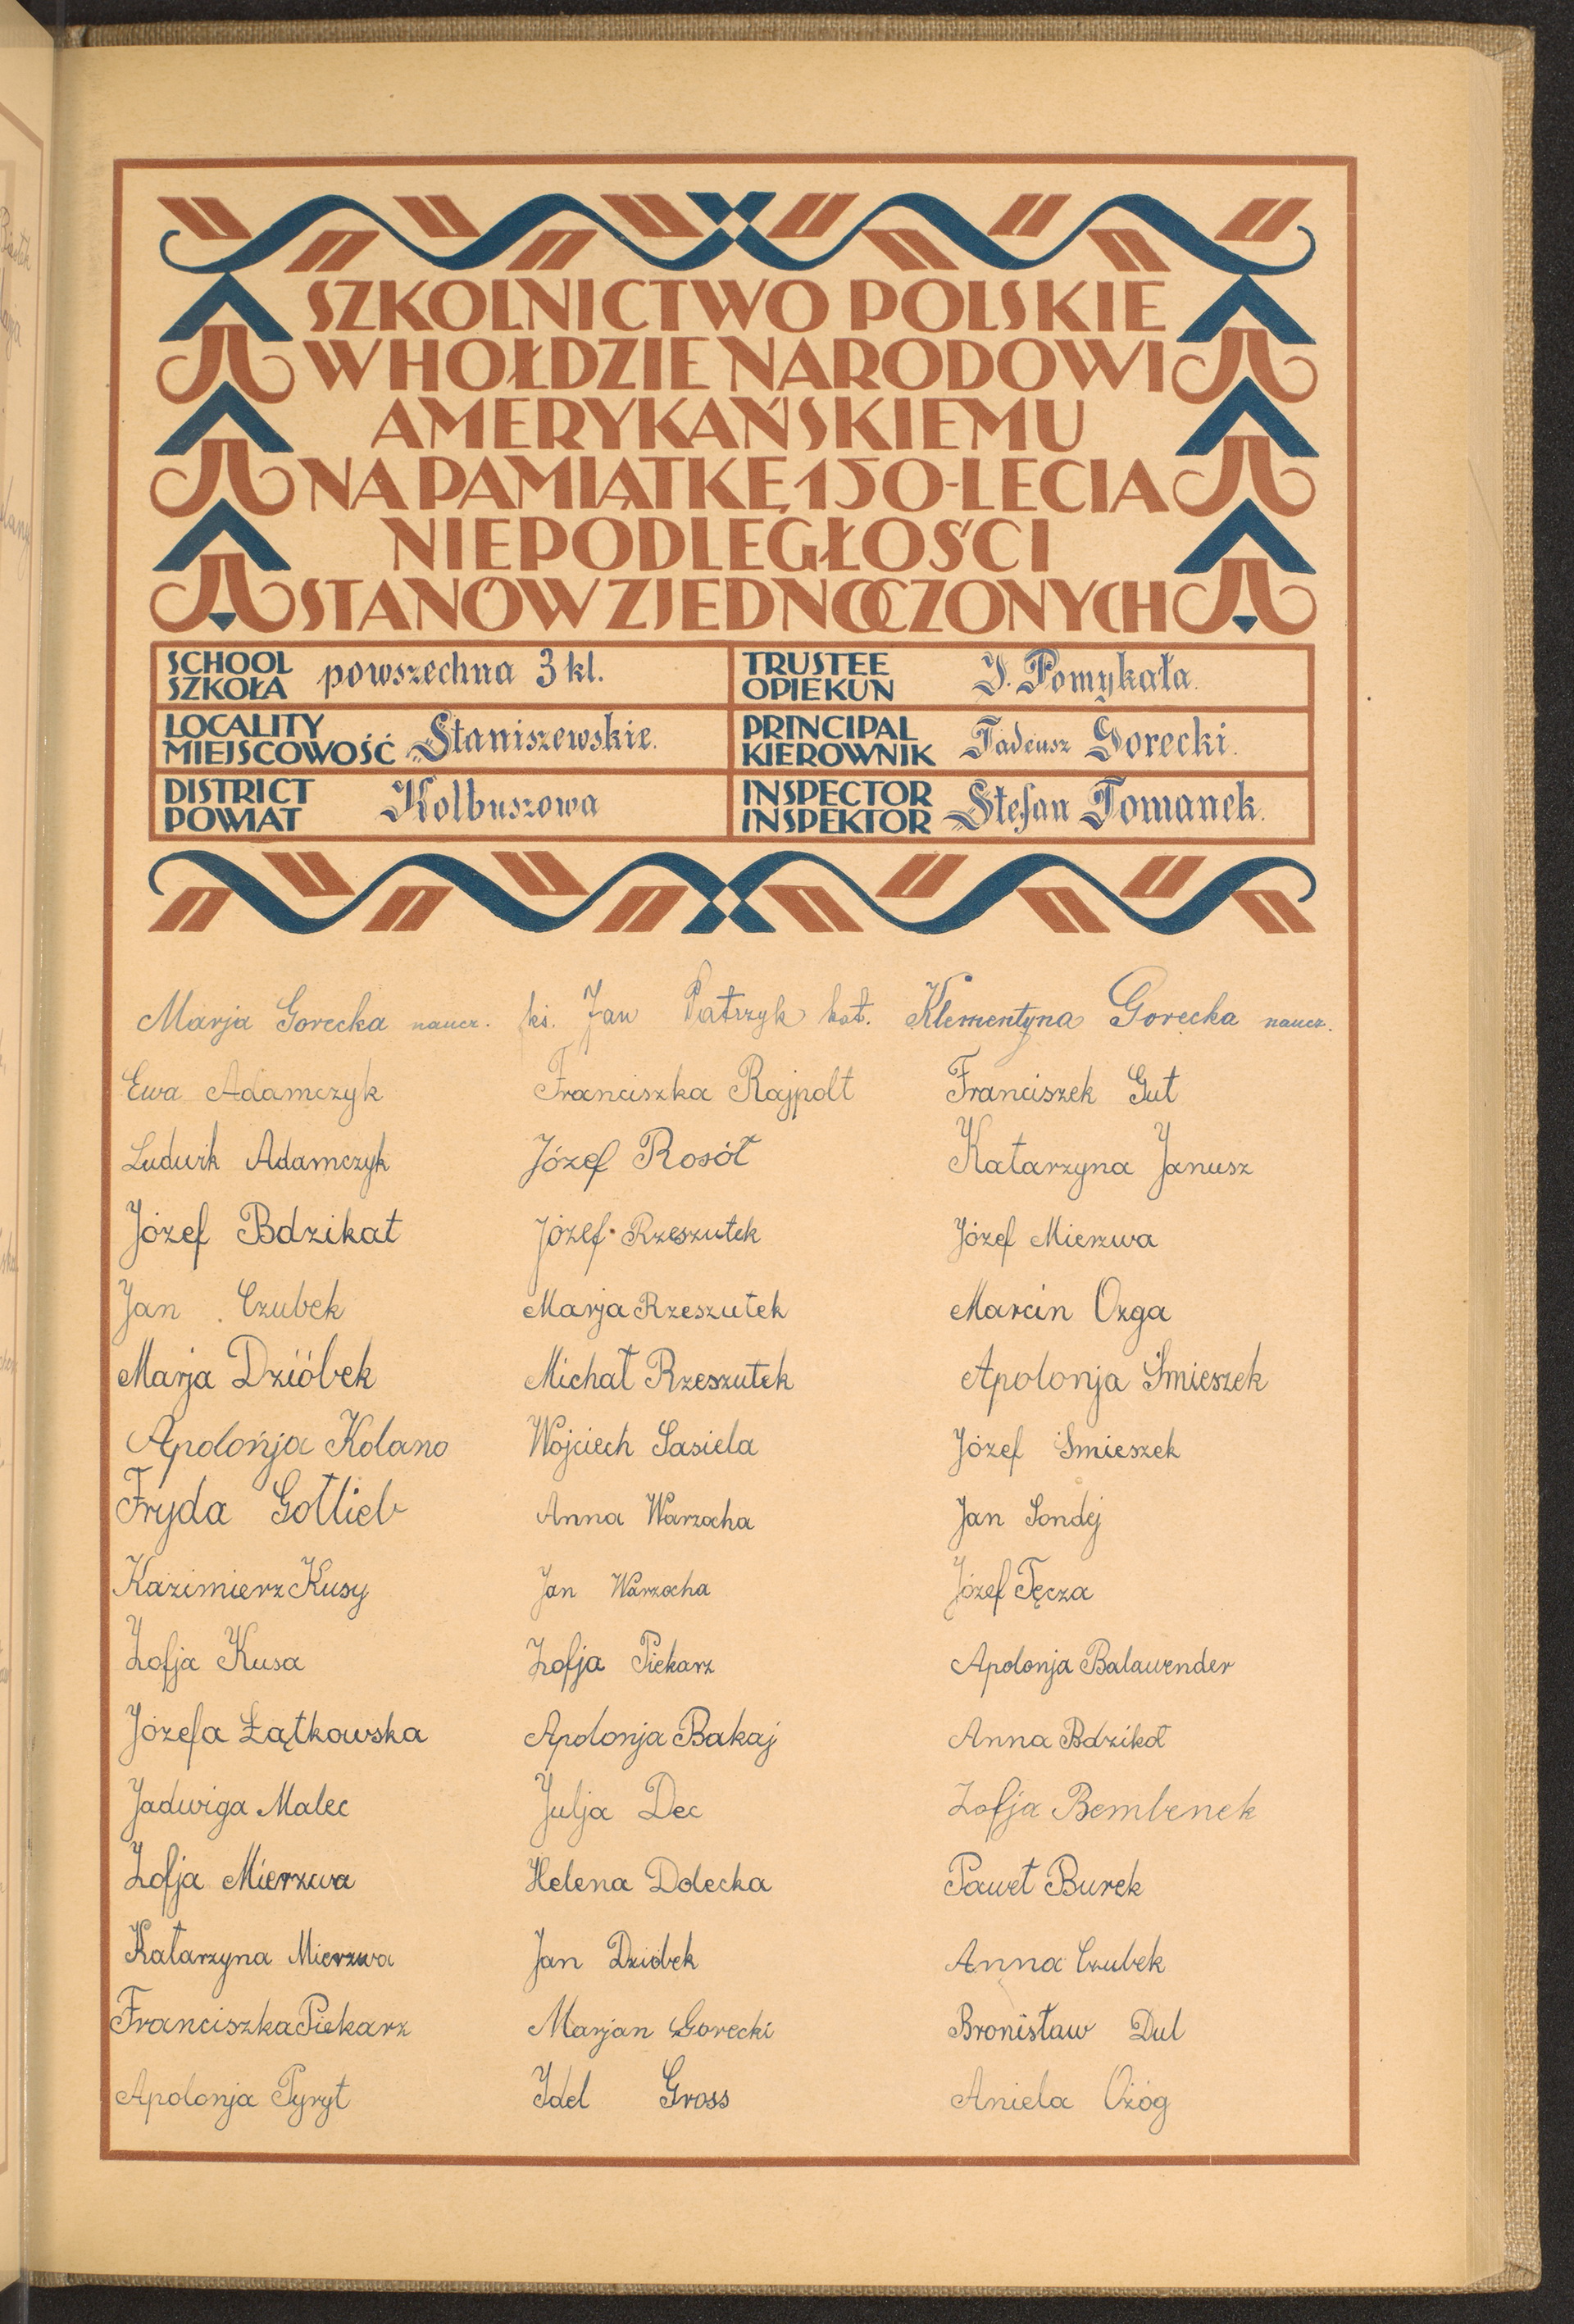 SZKOLNICTWO POLSKIE
W HOŁDZIE NARODOWI
AMERYKAŃSKIEMU
NA PAMIĄTKĘ 150-LECIA
NIEPODLEGŁOŚCI
STANÓW ZJEDNOCZONYCH
SCHOOL SZKOŁA powszechna 3 kl.
TRUSTEE OPIEKUN J. Pomykała.
LOCALITY MIEJSCOWOŚĆ Staniszewskie.
PRINCIPAL KIEROWNIK Tadeusz Gorecki.
DISTRICT POWIAT Kolbuszowa
INSPECTOR INSPEKTOR Stefan Tomanek.
Marja Gorecka naucz. ks. Jan Patrzyk kat. Klementyna Gorecka naucz.
Ewa Adamczyk Franciszka Rajpolt Franciszek Gut
Ludwik Adamczyk Józef Rosół Katarzyna Janusz
Józef Bdzikat Józef Rzeszutek Józef Mierzwa
Jan Czubek Marja Rzeszutek Marcin Ozga
Marja Dzióbek Michał Rzeszutek Apolonja Śmieszek
Apolońja Kolano Wojciech Sasiela Józef Śmieszek
Fryda Gottlieb Anna Warzocha Jan Sondej
Kazimierz Kusy Jan Warzocha Józef Tęcza
Zofja Kusa Zofja Piekarz Apolonja Balawender
Józefa Łątkowska Apolonja Bakaj Anna Bdzikot
Jadwiga Malec Julja Dec Zofja Bembenek
Zofja Mierzwa Helena Dolecka Paweł Burek
Katarzyna Mierzwa Jan Dziobek Anna Czubek
Franciszka Piekarz Marjan Gorecki Bronisław Dul
Apolonja Pyryt Idel Gross Aniela Ożóg